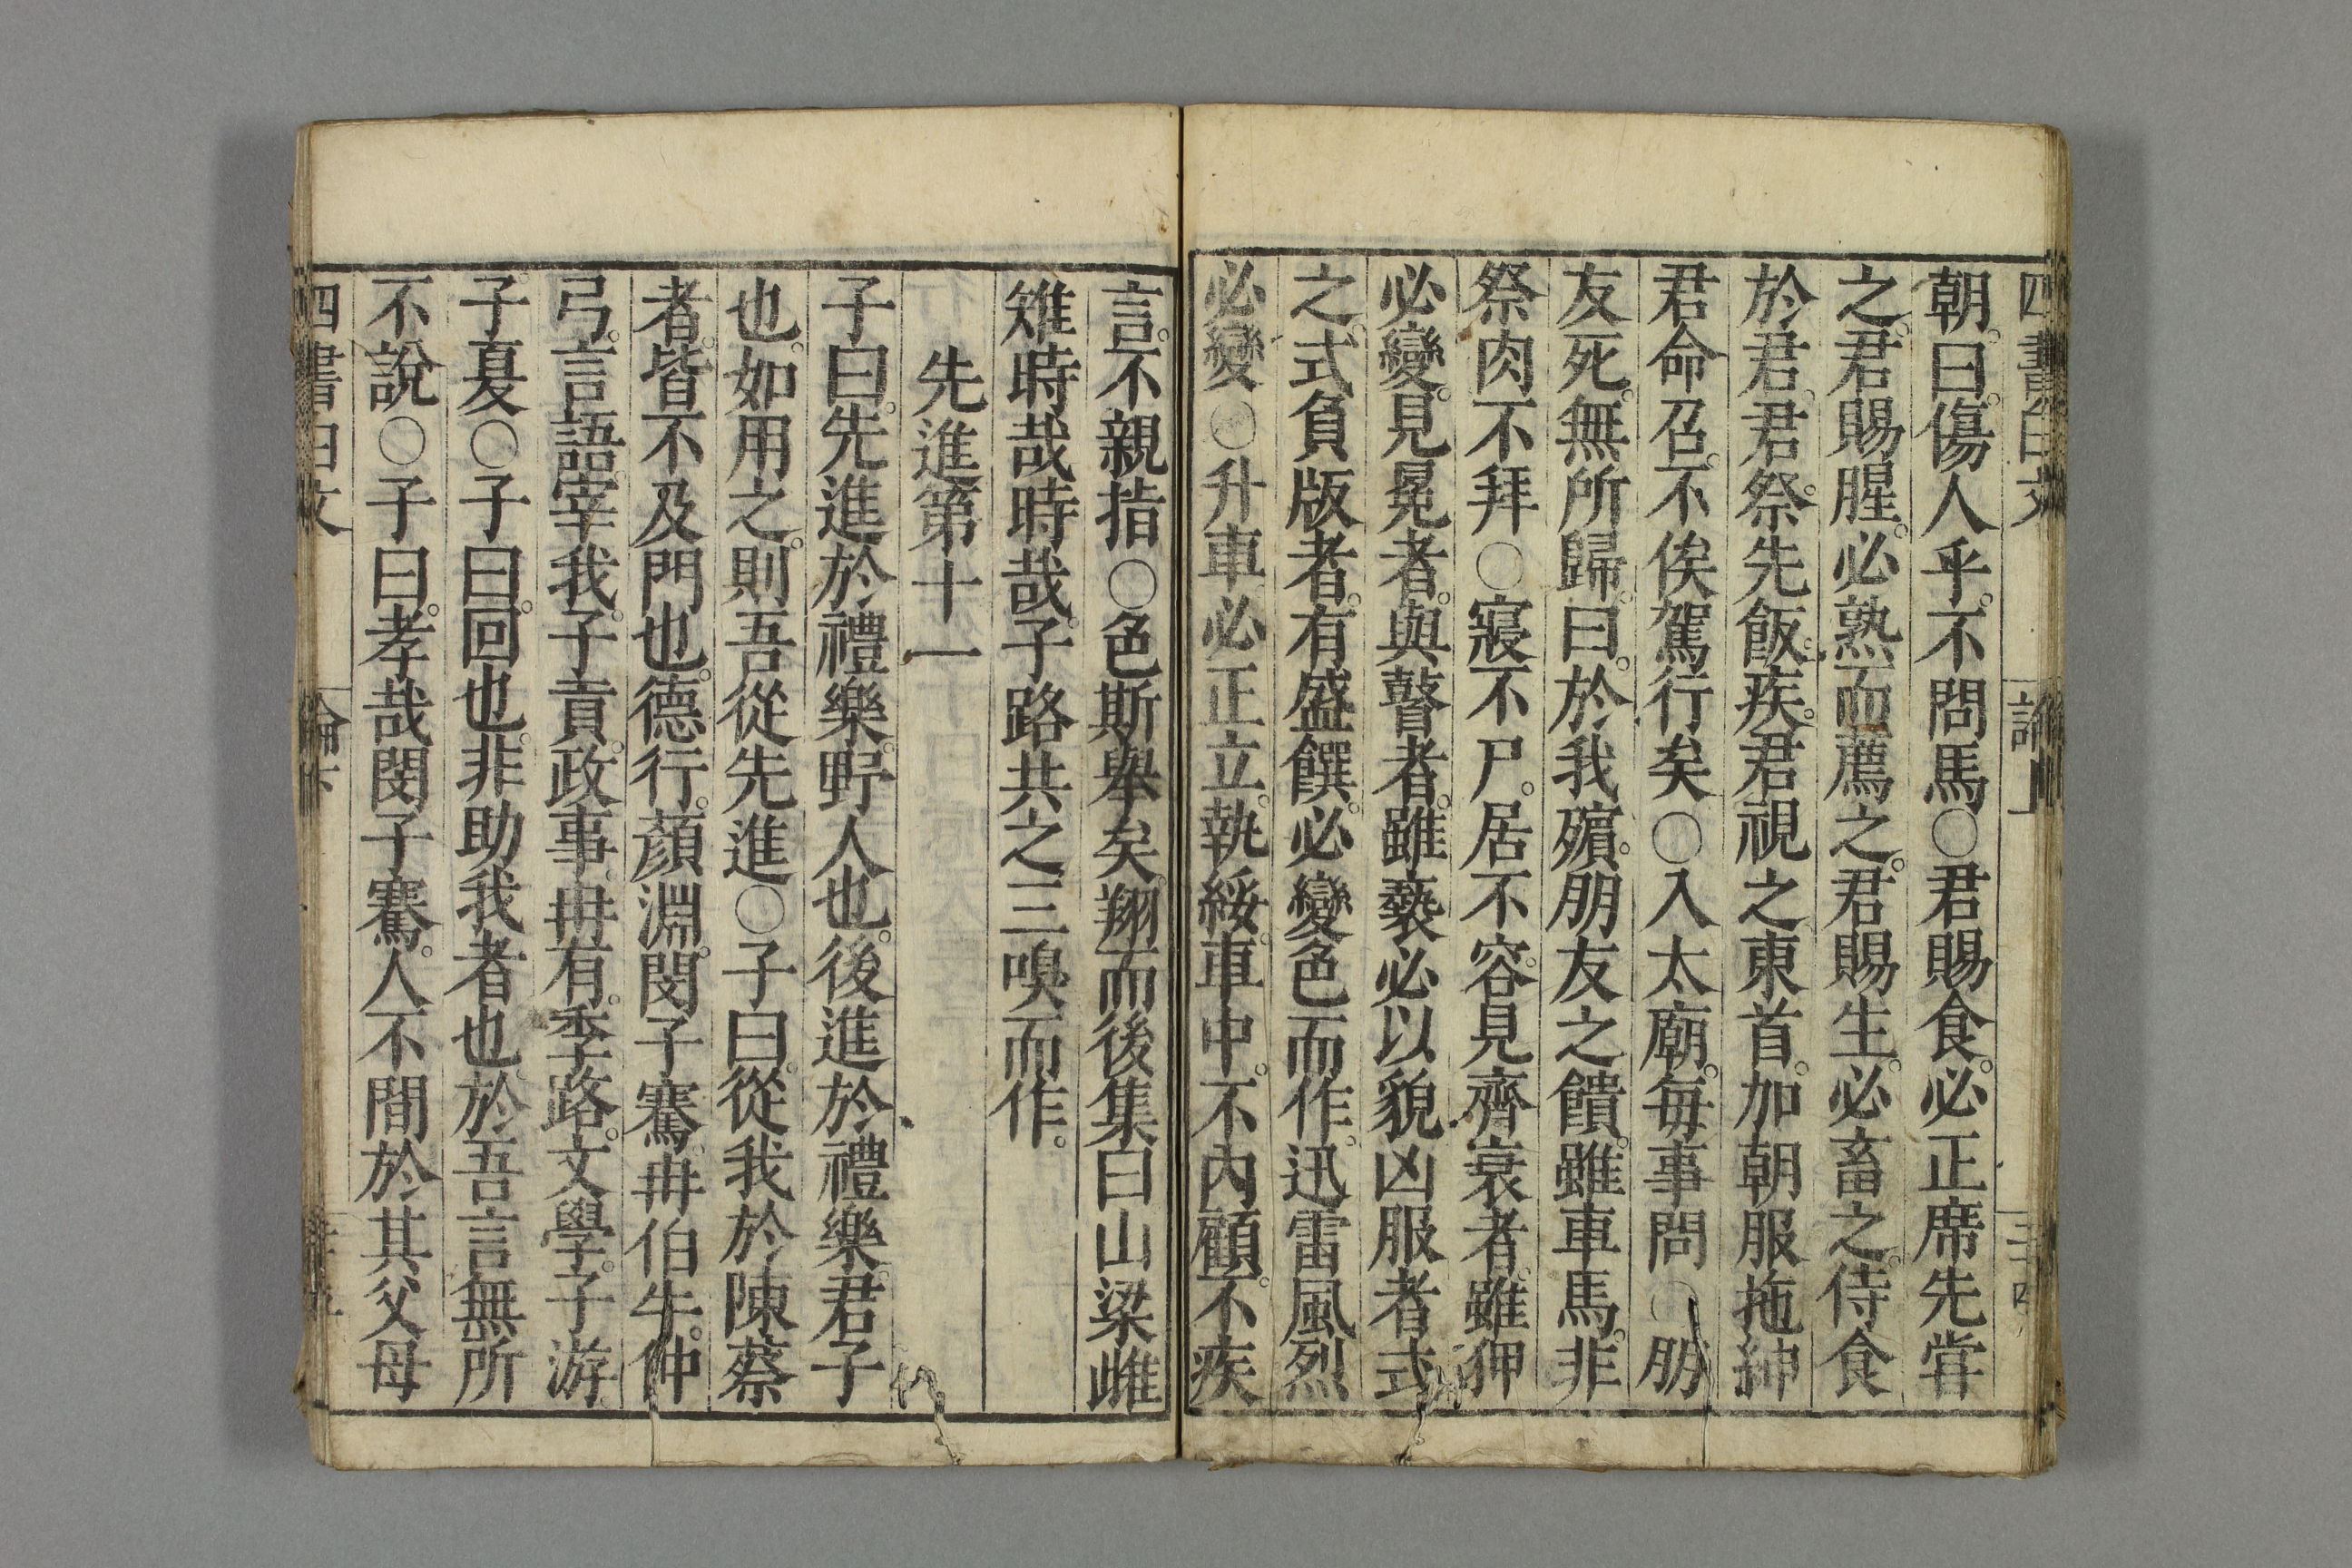 四書白文 論上 三十四
朝。曰。傷人乎。不問馬○君賜食。必正席先嘗
之。君賜腥。必熟而薦之。君賜生。必畜之。侍食
於君。君祭。先飯。疾。君視之東首。加朝服拖紳
君命召。不俟駕行矣○入太廟。每事問○朋
友死。無所歸。曰。於我殯。朋友之饋。雖車馬。非
祭肉不拜○寢不尸。居不容。見齊衰者。雖狎
必變。見冕者。與瞽者。雖褻必以貌凶服者式
之。式負版者。有盛饌。必變色而作。迅雷風烈
必變○升車必正立。執綏。車中。不內顧。不疾
言。不親指○色斯舉矣。翔而後集曰山梁雌
雉時哉時哉。子路共之三嗅而作。
先進第十一
子曰。先進於禮樂。野人也。後進於禮樂。君子
也。如用之。則吾從先進○子曰。從我於陳蔡
者。皆不及門也。德行。顏淵。閔子騫。冉伯牛。仲
弓。言語。宰我。子貢。政事。冉有。季路。文學。子游。
子夏○子曰。回也。非助我者也。於吾言無所
不說○子曰。孝哉閔子騫。人不間於其父母
四書白文 論下